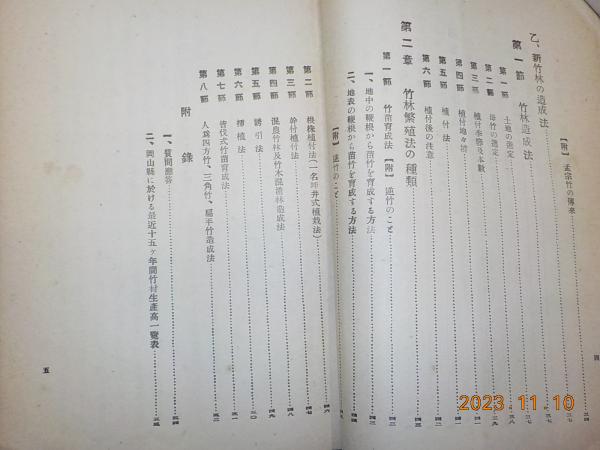 【附】孟宗竹の傳來
乙、新竹林の造成法
第一節 竹林造成法
第一 土地の選定
第二 母竹の選定
第三 植付季節及本數
第四節 植付地々拵
第五節 植付法
第六節 植付後の注意
第二章 竹林繁殖法の種類
第一節 竹苗育成法【附】逆竹のこと
一、地中の鞭根から苗竹を育成する方法
二、地表の鞭根から苗竹を育成する方法
【附】逆竹のこと
第二節 根株植付法(一名坪井式植栽法)
第三節 幹付植付法
第四節 混農竹林及竹木混淆林造成法
第五節 誘引法
第六節
第七節 皆伐式竹苗育成法
第八節 人爲四方竹、三角竹、扁平竹造成法
附錄
一、質問應答
二、岡山縣に於ける最近十五ヶ年間竹材生產高一覽表
四
五
2023 11.10